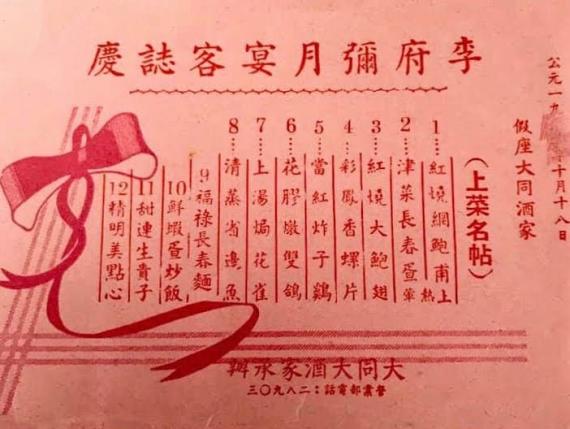 李府彌月宴客誌慶
公元一九 年十月十八日
假座大同酒家
(上菜名帖)
1…紅燒網鮑甫 上熱
2…津菜長春蛋 葷
3…紅燒大鮑翅
4…彩鳳香螺片
5…當紅炸子鷄
6…花膠燉雙鴿
7…上湯焗花雀
8…清蒸省邊魚
9福祿長春麵
10鮮蝦蛋炒飯
11甜連生貴子
12精明美點心
大同大酒家承辦
營業部電話：二八九〇三